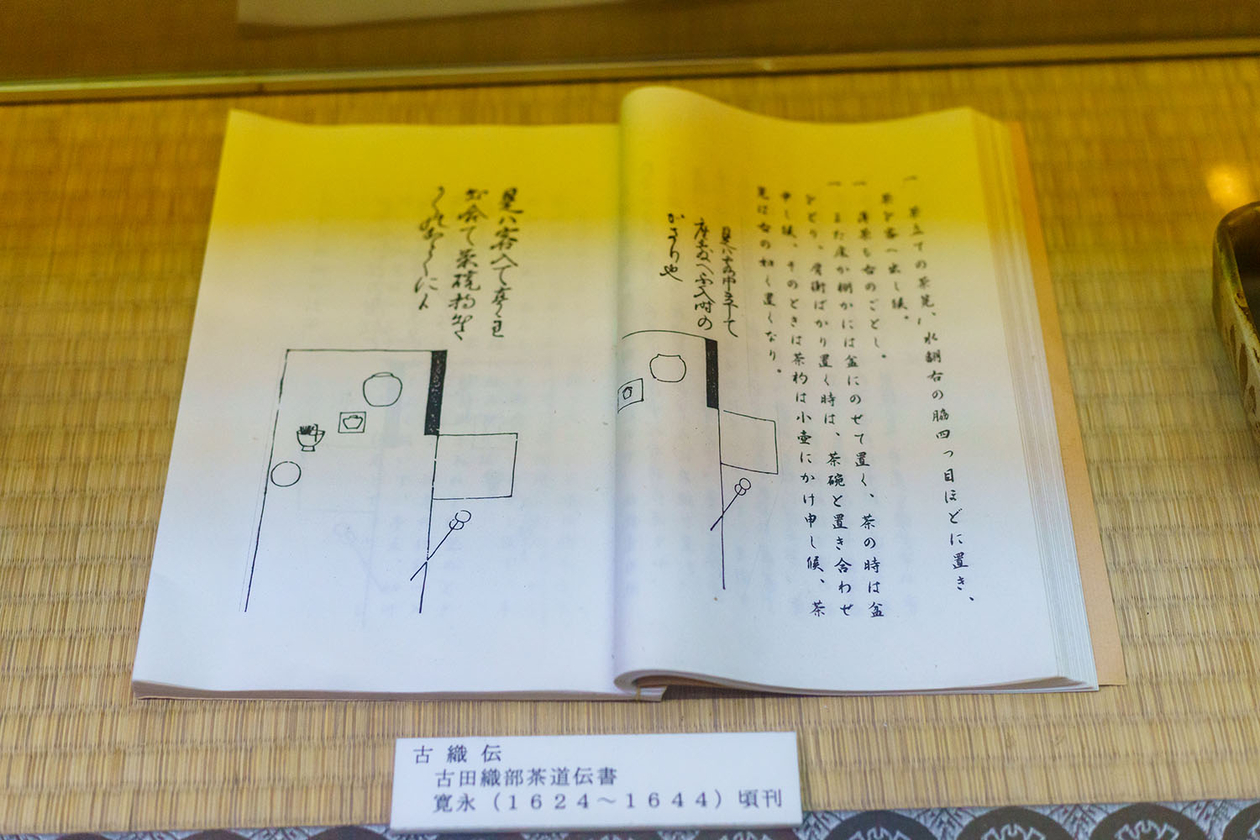 一 茶立ての茶筅、水翻右の脇四つ目ほどに置き、
茶を客へ出し候。
一 薄茶も右のごとし。
一 また床か棚かには盆にのせて置く、茶の時は盆
をとり、肩衝ばかり置く時は、茶碗と置き合わせ
申し候、そのときは茶杓は小壷にかけ申し候、茶
筅は右の如く置くなり。
是ハ
へ不入時の
かさり也
是ハ客入て
茶碗
古織伝
古田織部茶道伝書
寛永(1624~1644)頃刊